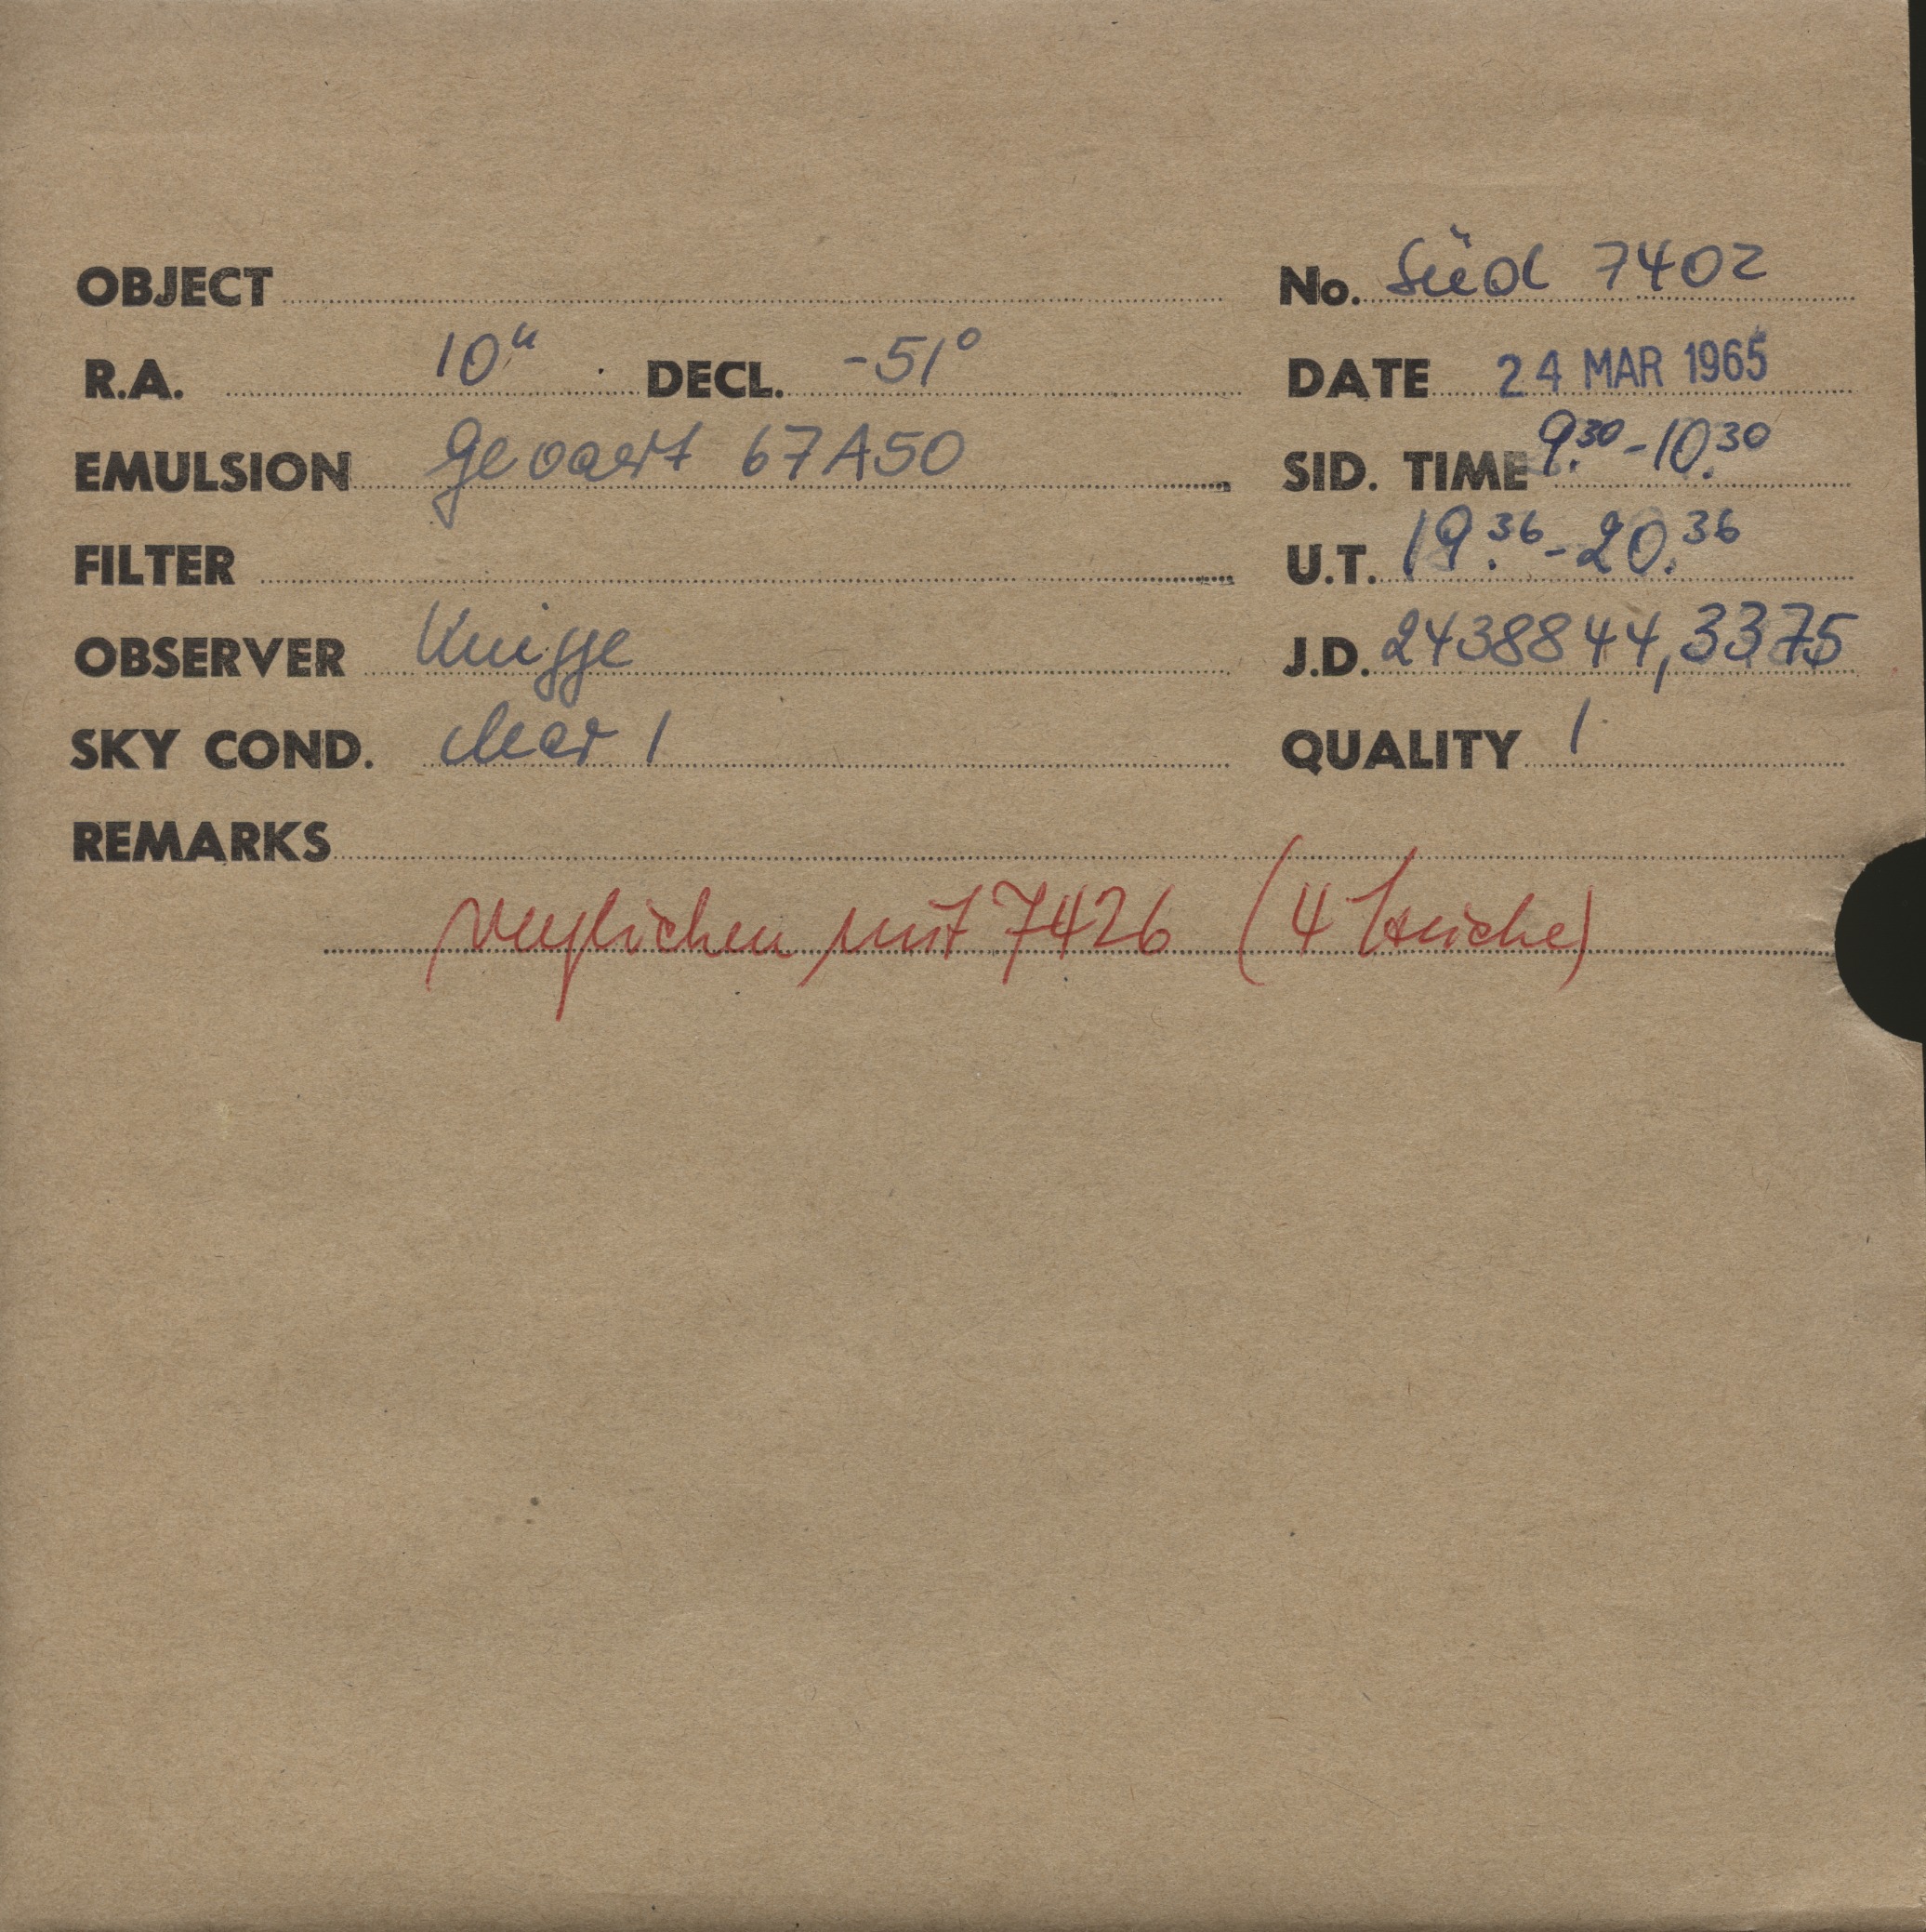 OBJECT No. Süd 7402
R.A. 10ʰ DECL. -51° DATE 24 MAR 1965
EMULSION Gevaert 67A50 SID. TIME 9.30-10.30
FILTER U.T. 19.36-20.36
OBSERVER Knigge J.D. 2438844,3375
SKY COND. clear 1 QUALITY 1
REMARKS
verglichen mit 7426 (4 Striche)